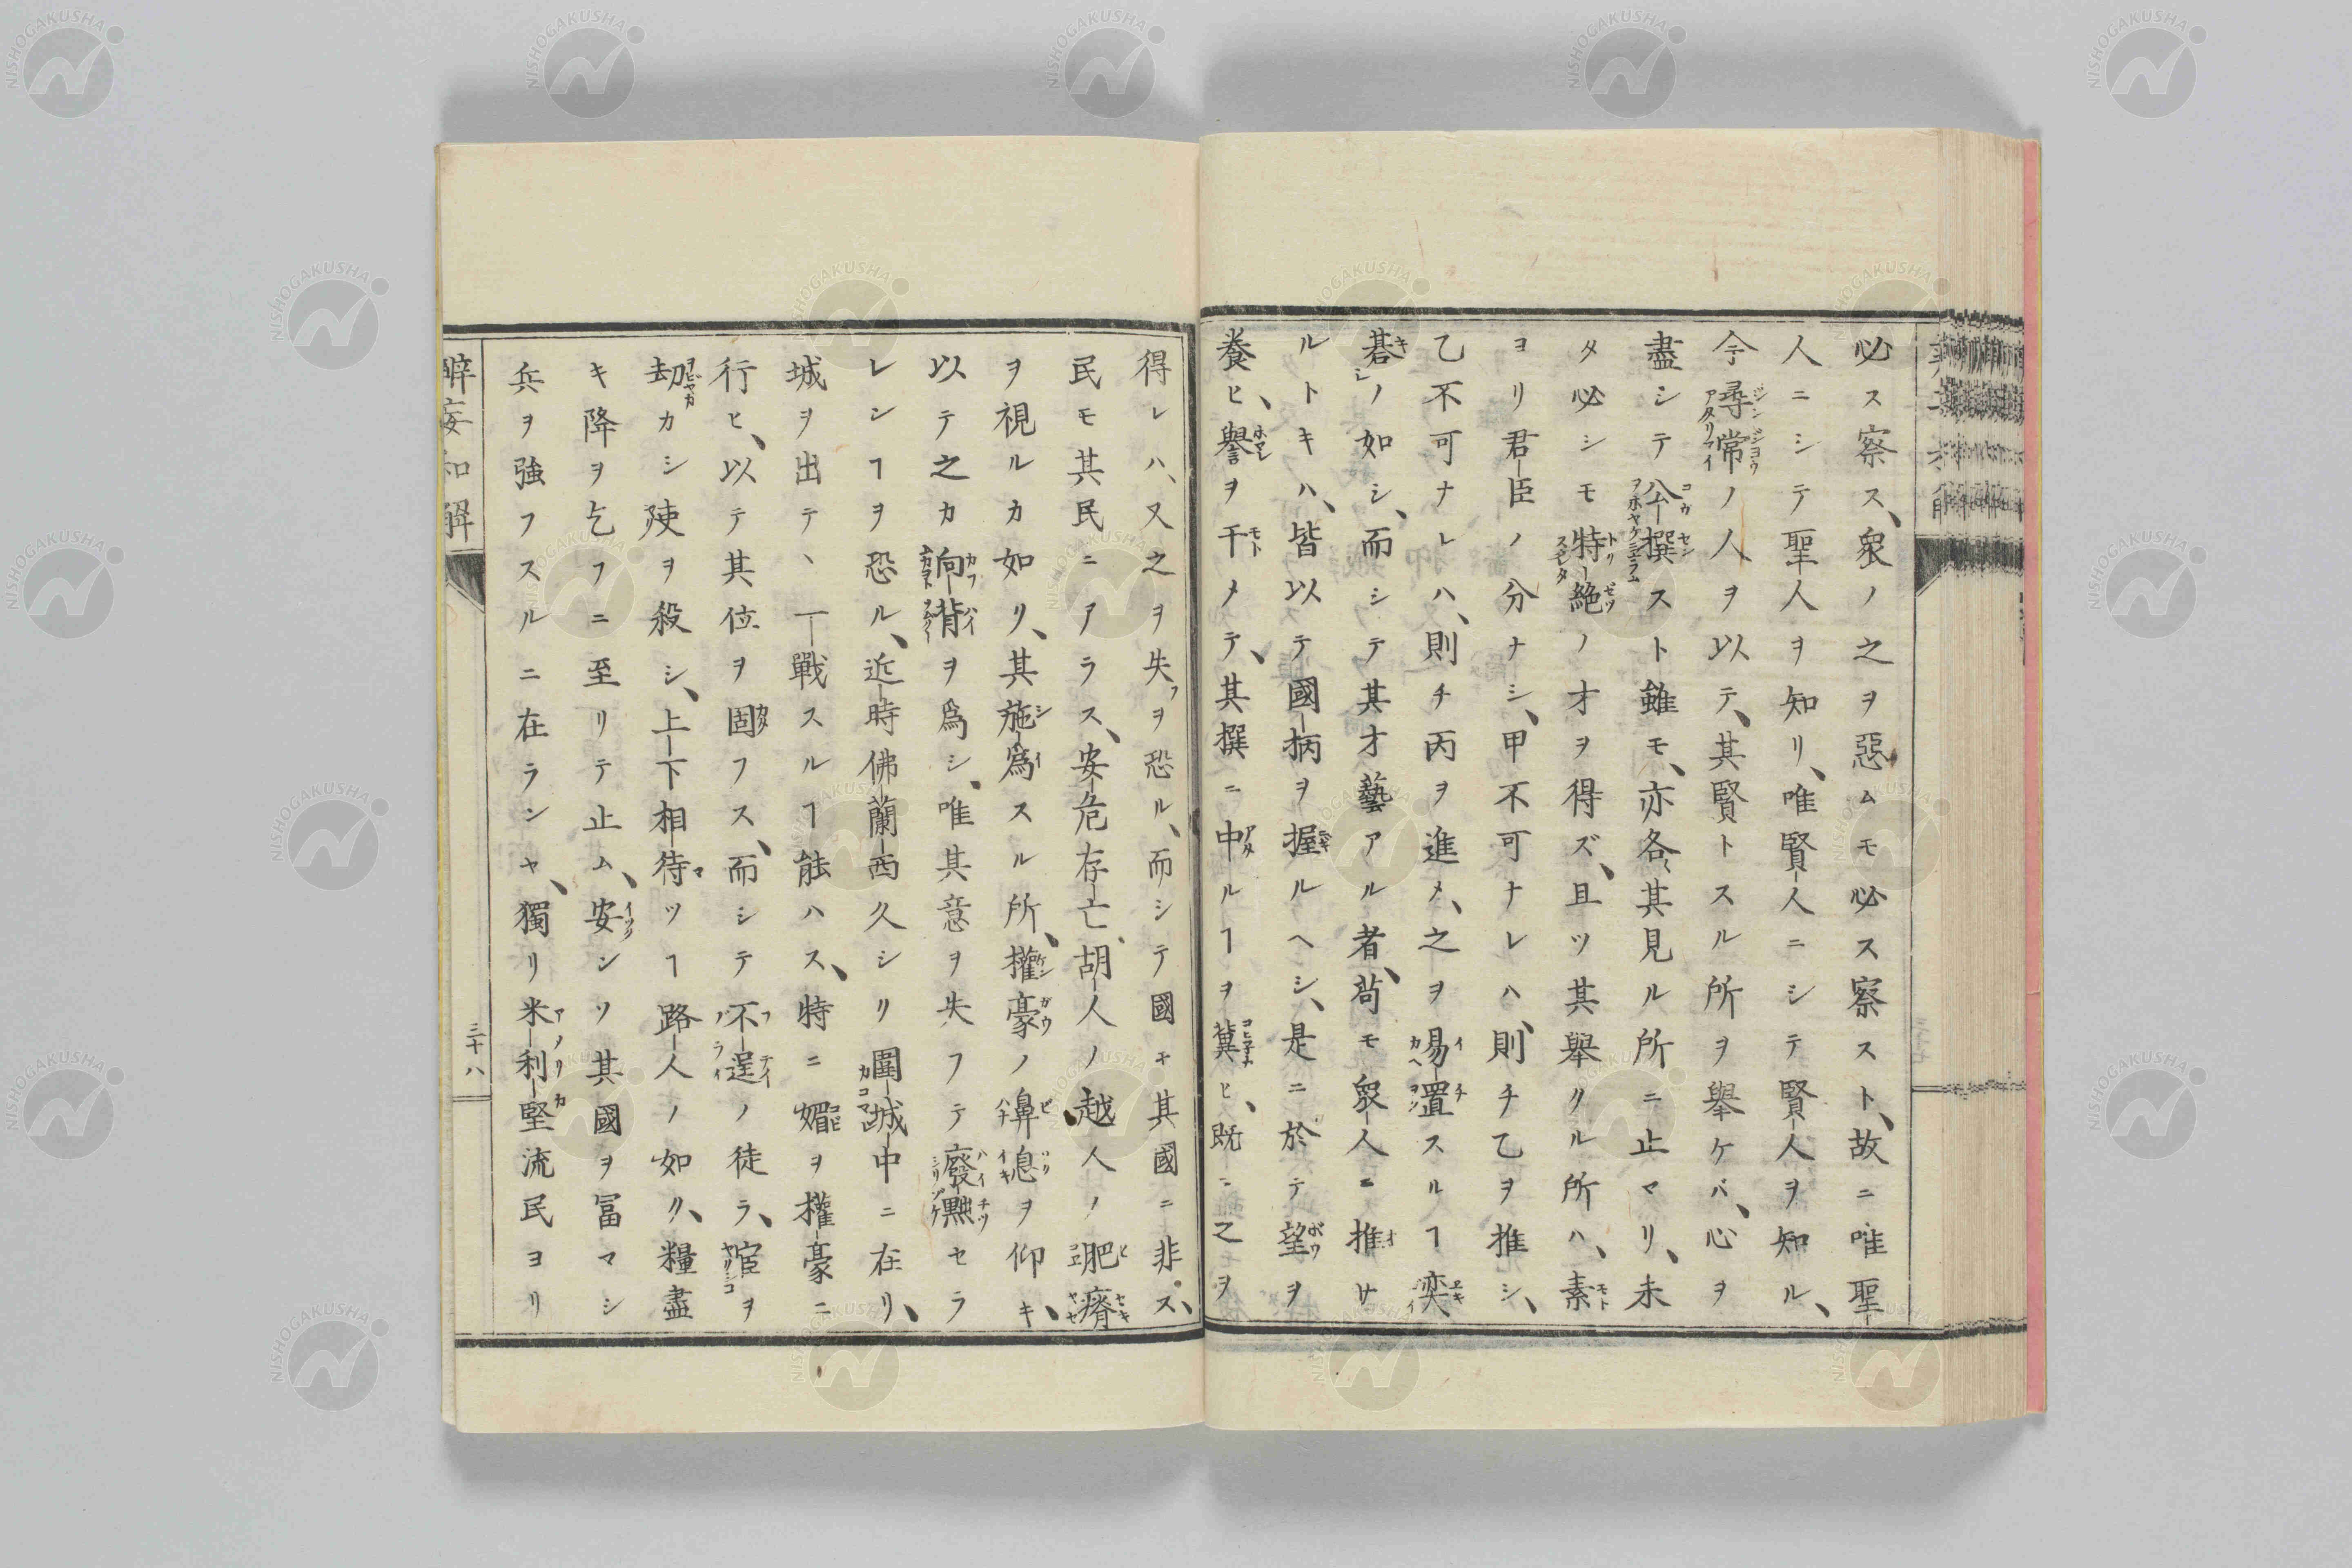 必ス察ス、衆ノ之ヲ惡ムモ必ス察スト、故ニ唯聖
人ニシテ聖人ヲ知リ、唯賢人ニシテ賢人ヲ知ル、
今尋常ノ人ヲ以テ、其賢トスル所ヲ舉ケバ、心ヲ
盡シテ公撰スト雖モ、亦各〻其見ル所ニ止マリ、未
タ必シモ特絶ノ才ヲ得ズ、且ツ其舉クル所ハ、素
ヨリ君臣ノ分ナシ、甲不可ナレハ、則チ乙ヲ推シ、
乙不可ナレハ、則チ丙ヲ進メ、之ヲ易置スルヿ奕
碁ノ如シ、而シテ其才藝アル者、苟モ衆人ニ推サ
ルトキハ、皆以テ國柄ヲ握ルヘシ、是ニ於テ望ヲ
養ヒ、譽ヲ干メテ、其撰ニ中ルヿヲ冀ヒ、既ニ之ヲ
得レハ、又之ヲ失フヲ恐ル、而シテ國其國ニ非ス、
民モ其民ニアラス、安危存亡、胡人ノ越人ノ肥瘠
ヲ視ルカ如リ、其施爲スル所、權豪ノ鼻息ヲ仰キ、
以テ之カ向背ヲ爲シ、唯其意ヲ失フテ廢黜セラ
レンヿヲ恐ル、近時佛蘭西久シク圍城中ニ在リ、
城ヲ出テ、一戰スルヿ能ハス、特ニ媚ヲ權豪ニ
行ヒ、以テ其位ヲ固フス、而シテ不逞ノ徒ラ、宦ヲ
劫カシ陝ヲ殺シ、上下相待ツヿ路人ノ如ク、糧盡
キ降ヲ乞フニ至リテ止ム、安ンソ其國ヲ冨マシ
兵ヲ強フスルニ在ランヤ、獨リ米利堅流民ヨリ
辟妄和解
三十八
NISHOGAKUSHA